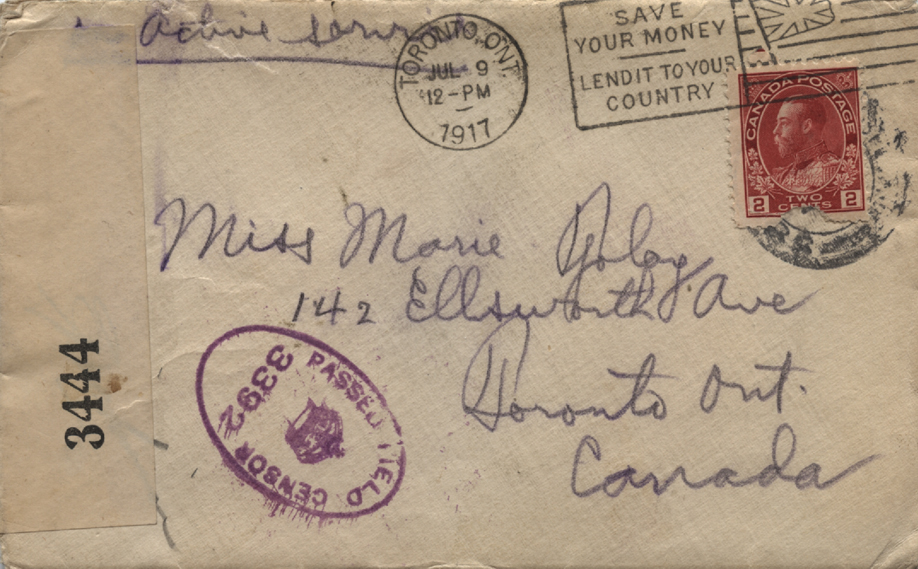 Active
TORONTO, ONT.
JUL 9
12-PM
1917
SAVE
YOUR MONEY
LEND IT TO YOUR
COUNTRY
CANADA POSTAGE
2 TWO CENTS 2
Miss Marie
142 Ellsworth Ave
Toronto Ont.
Canada
PASSED FIELD CENSOR
3392
3444